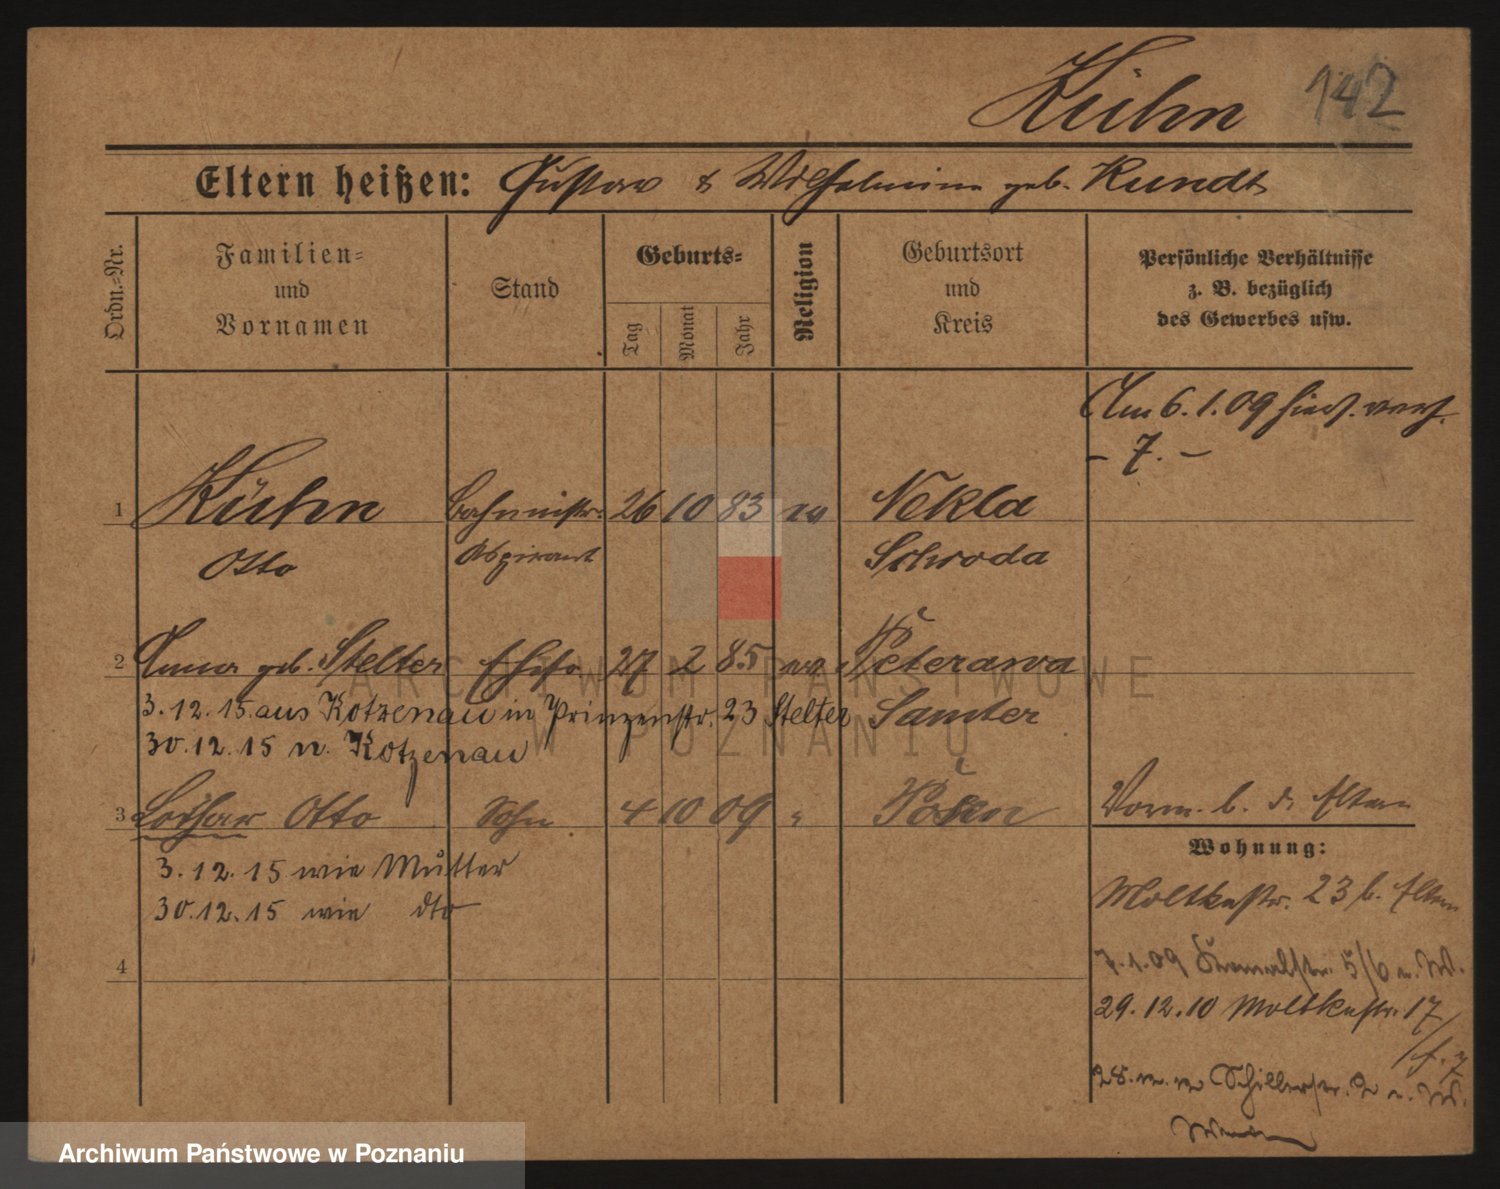 Kühn 142
Eltern heißen: Gustav & Wilhelmine geb. Kundt
Ordn.-Nr.
Familien-
und
Vornamen
Stand
Geburts-
Tag
Monat
Jahr
Religion
Geburtsort
und
Kreis
Persönliche Verhältnisse
z. B. bezüglich
des Gewerbes usw.
Am 6.1.09 hier verh.
- 7. -
1 Kühn Bahnmstr. 26 10 83 ev Nekla
Otto Aspirant Schroda
2 Anna geb. Stelter Ehefr 27 2 85 ev Peterawa
3.12.15 aus Kotzenau in Prinzenstr. 23 Stelter Samter
30.12.15 n. Kotzenau
3 Lothar Otto Sohn 4 10 09 " Posen Vorm. b. d. Eltern
3.12.15 wie Mutter
30.12.15 wie dto
4
Wohnung:
Moltkestr. 23 b. Eltern
7.1.09 5/6 n. W.
29.12.10 Moltkestr. 17
Schillerstr. 2 n. W.
ARCHIWUM PAŃSTWOWE
W POZNANIU
Archiwum Państwowe w Poznaniu